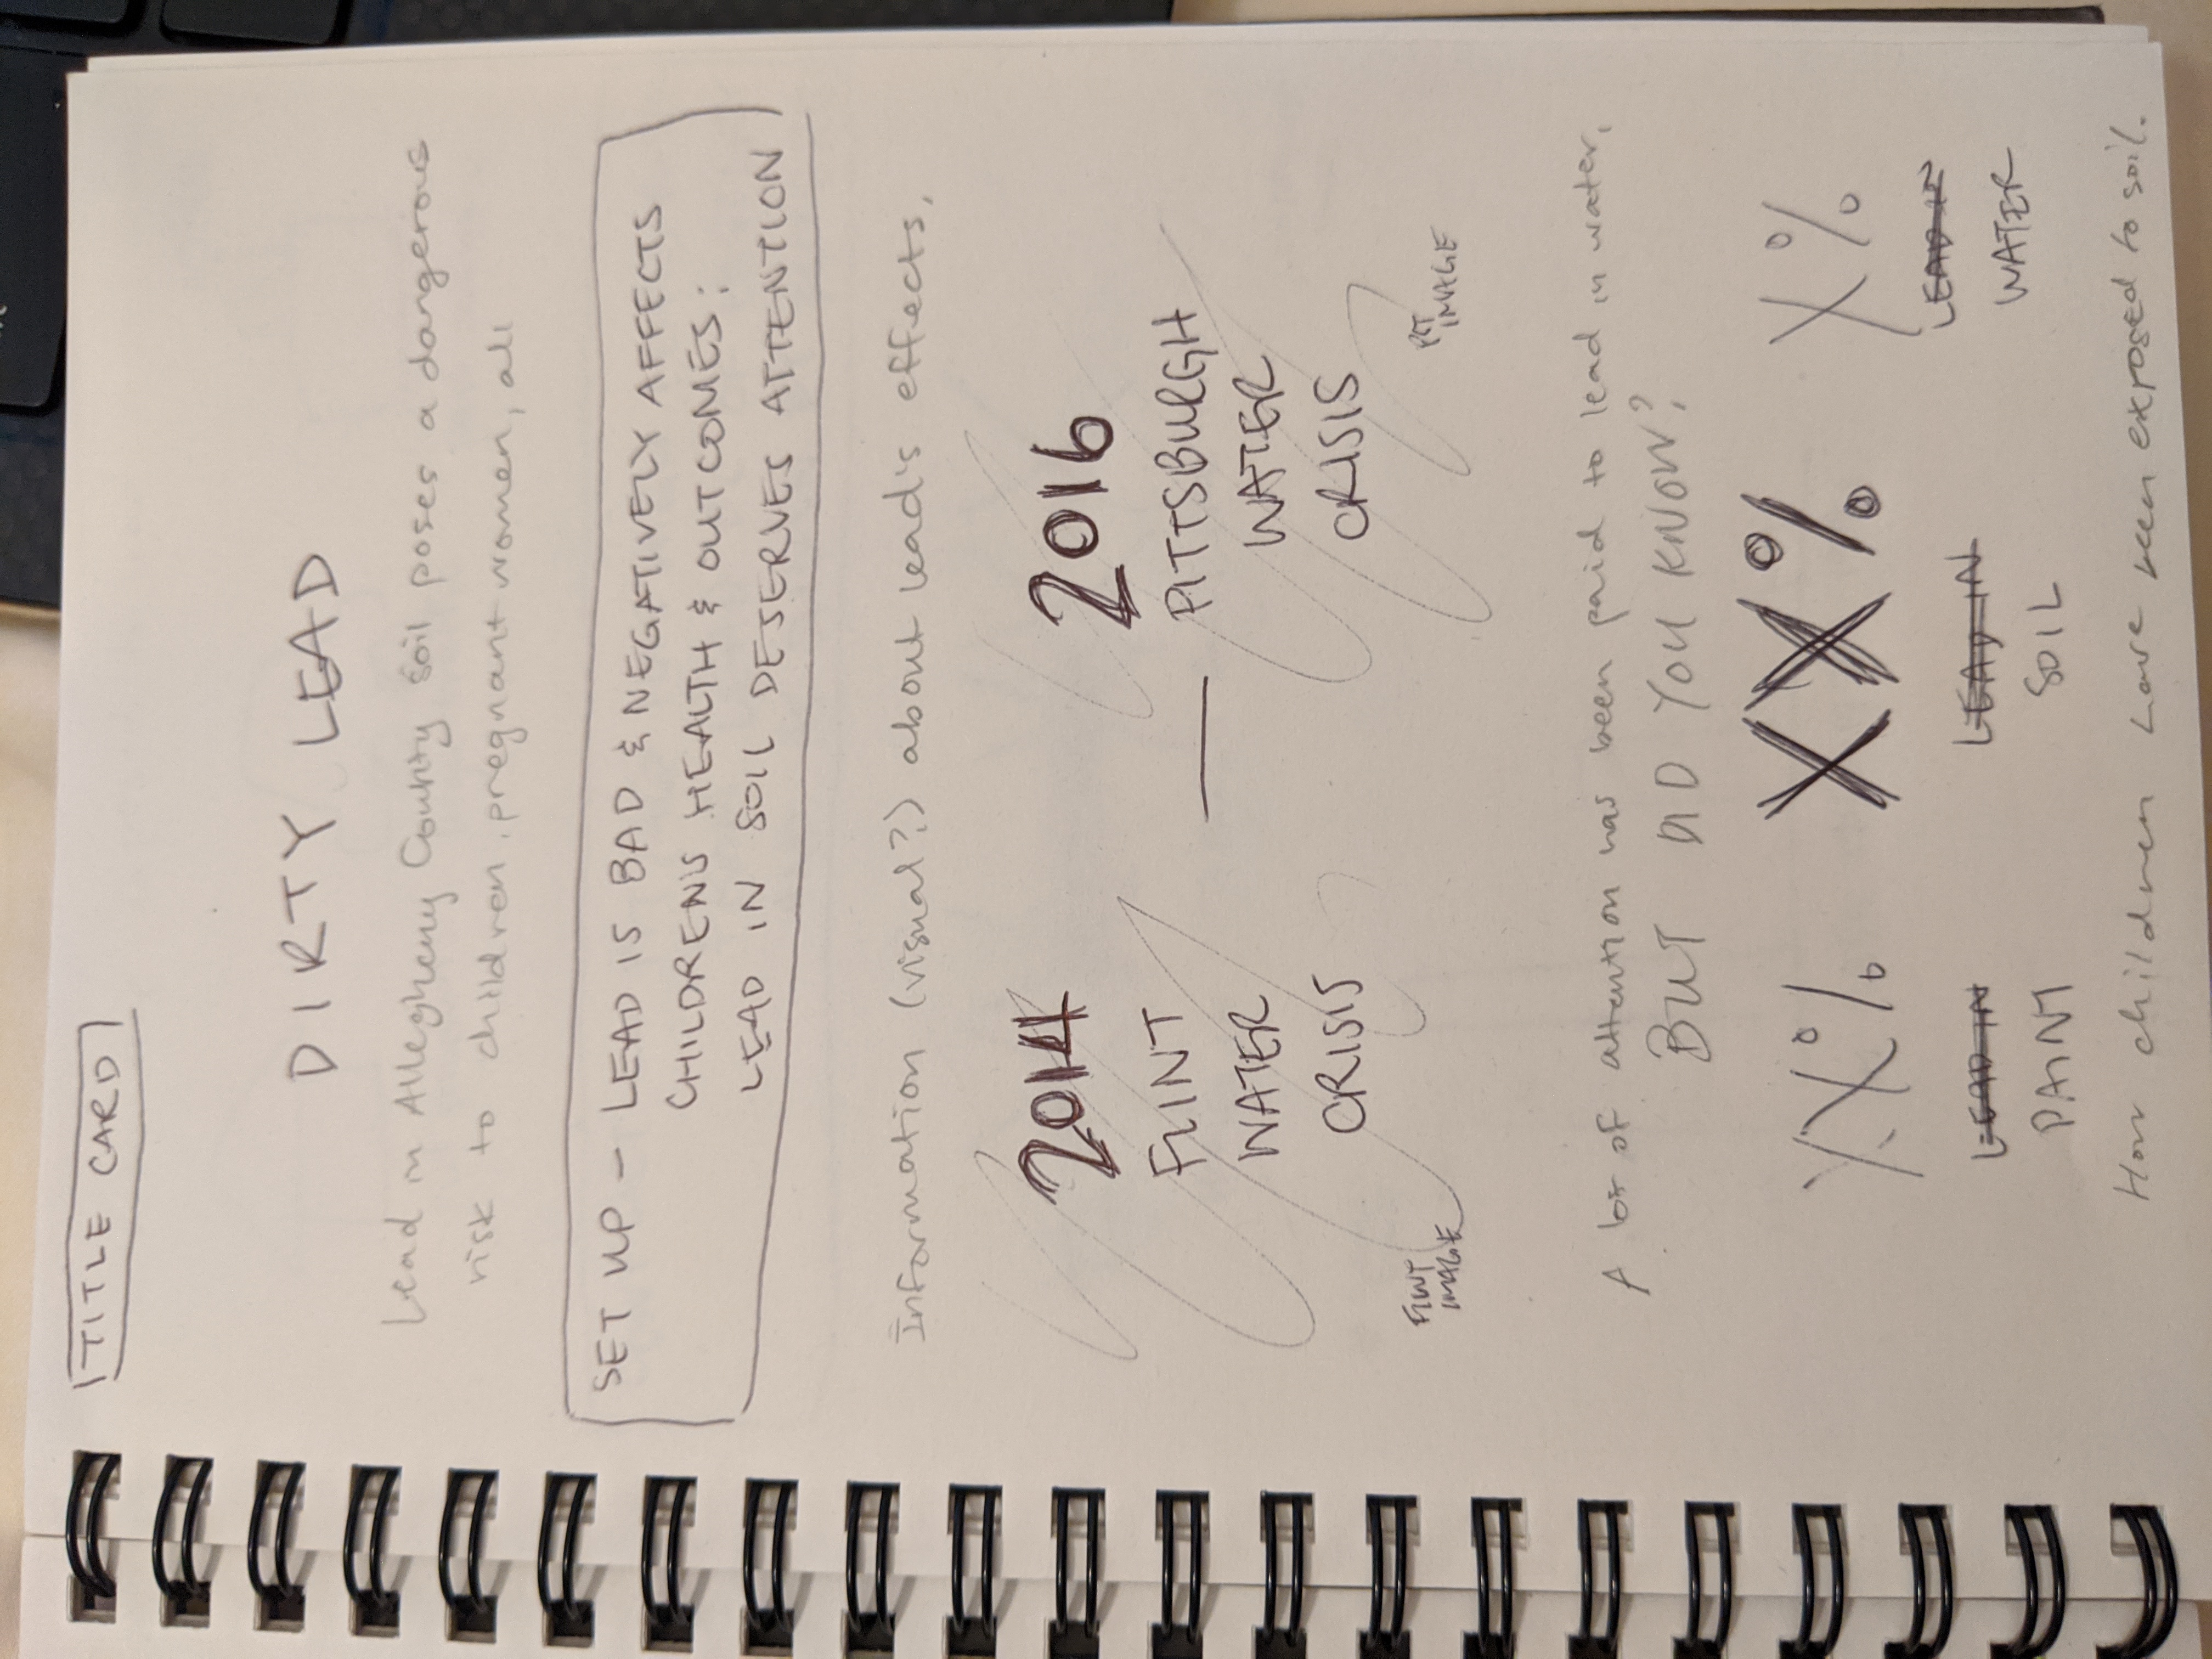 TITLE CARD
DIRTY LEAD
Lead in Allegheny County soil poses a dangerous
risk to children, pregnant women, all
SET UP – LEAD IS BAD & NEGATIVELY AFFECTS
CHILDREN'S HEALTH & OUTCOMES;
LEAD IN SOIL DESERVES ATTENTION
Information (visual?) about lead's effects.
2014
FLINT
WATER
CRISIS
FLINT
IMAGE
—
2016
PITTSBURGH
WATER
CRISIS
PGT
IMAGE
A lot of attention has been paid to lead in water,
BUT DID YOU KNOW?
XX% XX% X%
LEAD IN LEAD IN LEAD IN
PAINT SOIL WATER
How children have been exposed to soil.